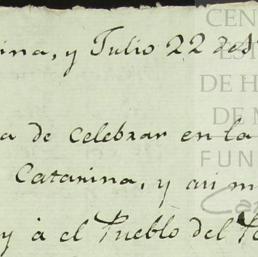 ina, y Julio 22 de
a de celebrar en la
Catarina, y asi m
y à el Pueblo del
CEN
ES
DE H
DE M
FUN